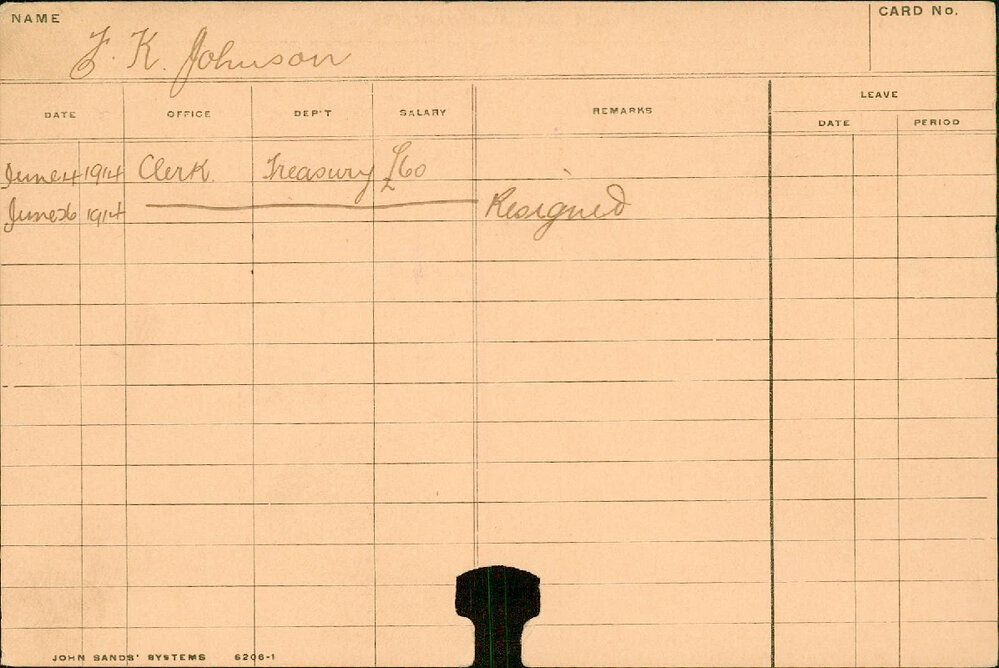 NAME
CARD No.
F. K. Johnson
DATE OFFICE DEP'T SALARY REMARKS LEAVE
DATE PERIOD
June 4 1914 Clerk. Treasury £60
June 26 1914 Resigned
JOHN SANDS' SYSTEMS 6206-1